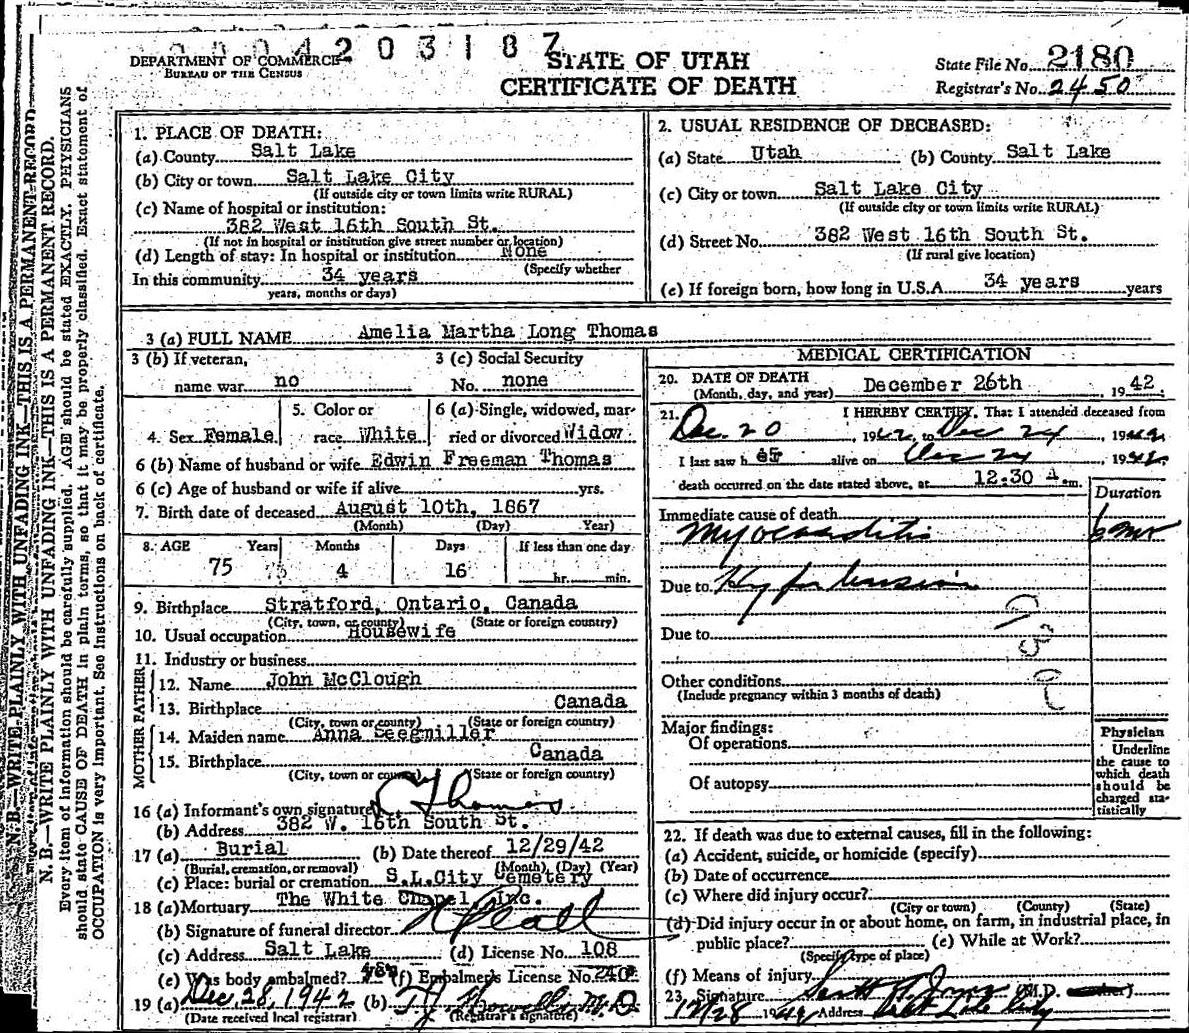 0004203187
DEPARTMENT OF COMMERCE
BUREAU OF THE CENSUS
STATE OF UTAH
CERTIFICATE OF DEATH
State File No. 2180
Registrar's No. 2450
N. B.—WRITE PLAINLY WITH UNFADING INK—THIS IS A PERMANENT RECORD
N. B.—WRITE PLAINLY WITH UNFADING INK—THIS IS A PERMANENT RECORD.
Every item of information should be carefully supplied. AGE should be stated EXACTLY. PHYSICIANS
should state CAUSE OF DEATH in plain terms, so that it may be properly classified. Exact statement of
OCCUPATION is very important. See instructions on back of certificate.
1. PLACE OF DEATH:
(a) County Salt Lake
(b) City or town Salt Lake City
(If outside city or town limits write RURAL)
(c) Name of hospital or institution:
382 West 16th South St.
(If not in hospital or institution give street number or location)
(d) Length of stay: In hospital or institution None
(Specify whether
In this community 34 years
years, months or days)
2. USUAL RESIDENCE OF DECEASED:
(a) State Utah (b) County Salt Lake
(c) City or town Salt Lake City
(If outside city or town limits write RURAL)
(d) Street No. 382 West 16th South St.
(If rural give location)
(e) If foreign born, how long in U.S.A. 34 years years
3 (a) FULL NAME Amelia Martha Long Thomas
3 (b) If veteran,
name war no
3 (c) Social Security
No. none
4. Sex Female
5. Color or
race White
6 (a) Single, widowed, mar-
ried or divorced Widow
6 (b) Name of husband or wife Edwin Freeman Thomas
6 (c) Age of husband or wife if alive yrs.
7. Birth date of deceased August 10th, 1867
(Month) (Day) Year)
8. AGE Years Months Days If less than one day
75 4 16 hr. min.
9. Birthplace Stratford, Ontario, Canada
(City, town, or county) (State or foreign country)
10. Usual occupation Housewife
11. Industry or business
MOTHER FATHER
12. Name John McClough
13. Birthplace Canada
(City, town or county) (State or foreign country)
14. Maiden name Anna Seegmiller
15. Birthplace Canada
(City, town or county) (State or foreign country)
16 (a) Informant's own signature Thomas
(b) Address 382 W. 16th South St.
17 (a) Burial (b) Date thereof 12/29/42
(Burial, cremation, or removal) (Month) (Day) (Year)
(c) Place: burial or cremation S.L.City Cemetery
18 (a) Mortuary The White Chapel, Inc.
(b) Signature of funeral director
(c) Address Salt Lake (d) License No. 108
(e) Was body embalmed? yes (f) Embalmer's License No. 240
19 (a) Dec. 28, 1942 (b) T.J. Howells M.D
(Date received local registrar) (Registrar's signature)
MEDICAL CERTIFICATION
20. DATE OF DEATH
(Month, day, and year) December 26th 1942.
21. I HEREBY CERTIFY, That I attended deceased from
Dec. 20, 1942, to Dec 24, 1942
I last saw her alive on Dec 24, 1942
death occurred on the date stated above, at 12:30 A.m.
Duration
Immediate cause of death
Myocarditis 6 mo
Due to Hypertension
Due to
93 d
Other conditions
(Include pregnancy within 3 months of death)
Major findings:
Of operations
Of autopsy
Physician
Underline
the cause to
which death
should be
charged sta-
tistically
22. If death was due to external causes, fill in the following:
(a) Accident, suicide, or homicide (specify)
(b) Date of occurrence
(c) Where did injury occur?
(City or town) (County) (State)
(d) Did injury occur in or about home, on farm, in industrial place, in
public place? (e) While at Work?
(Specify type of place)
(f) Means of injury
23. Signature (M.D.
12/28 1942 Address Salt Lake City